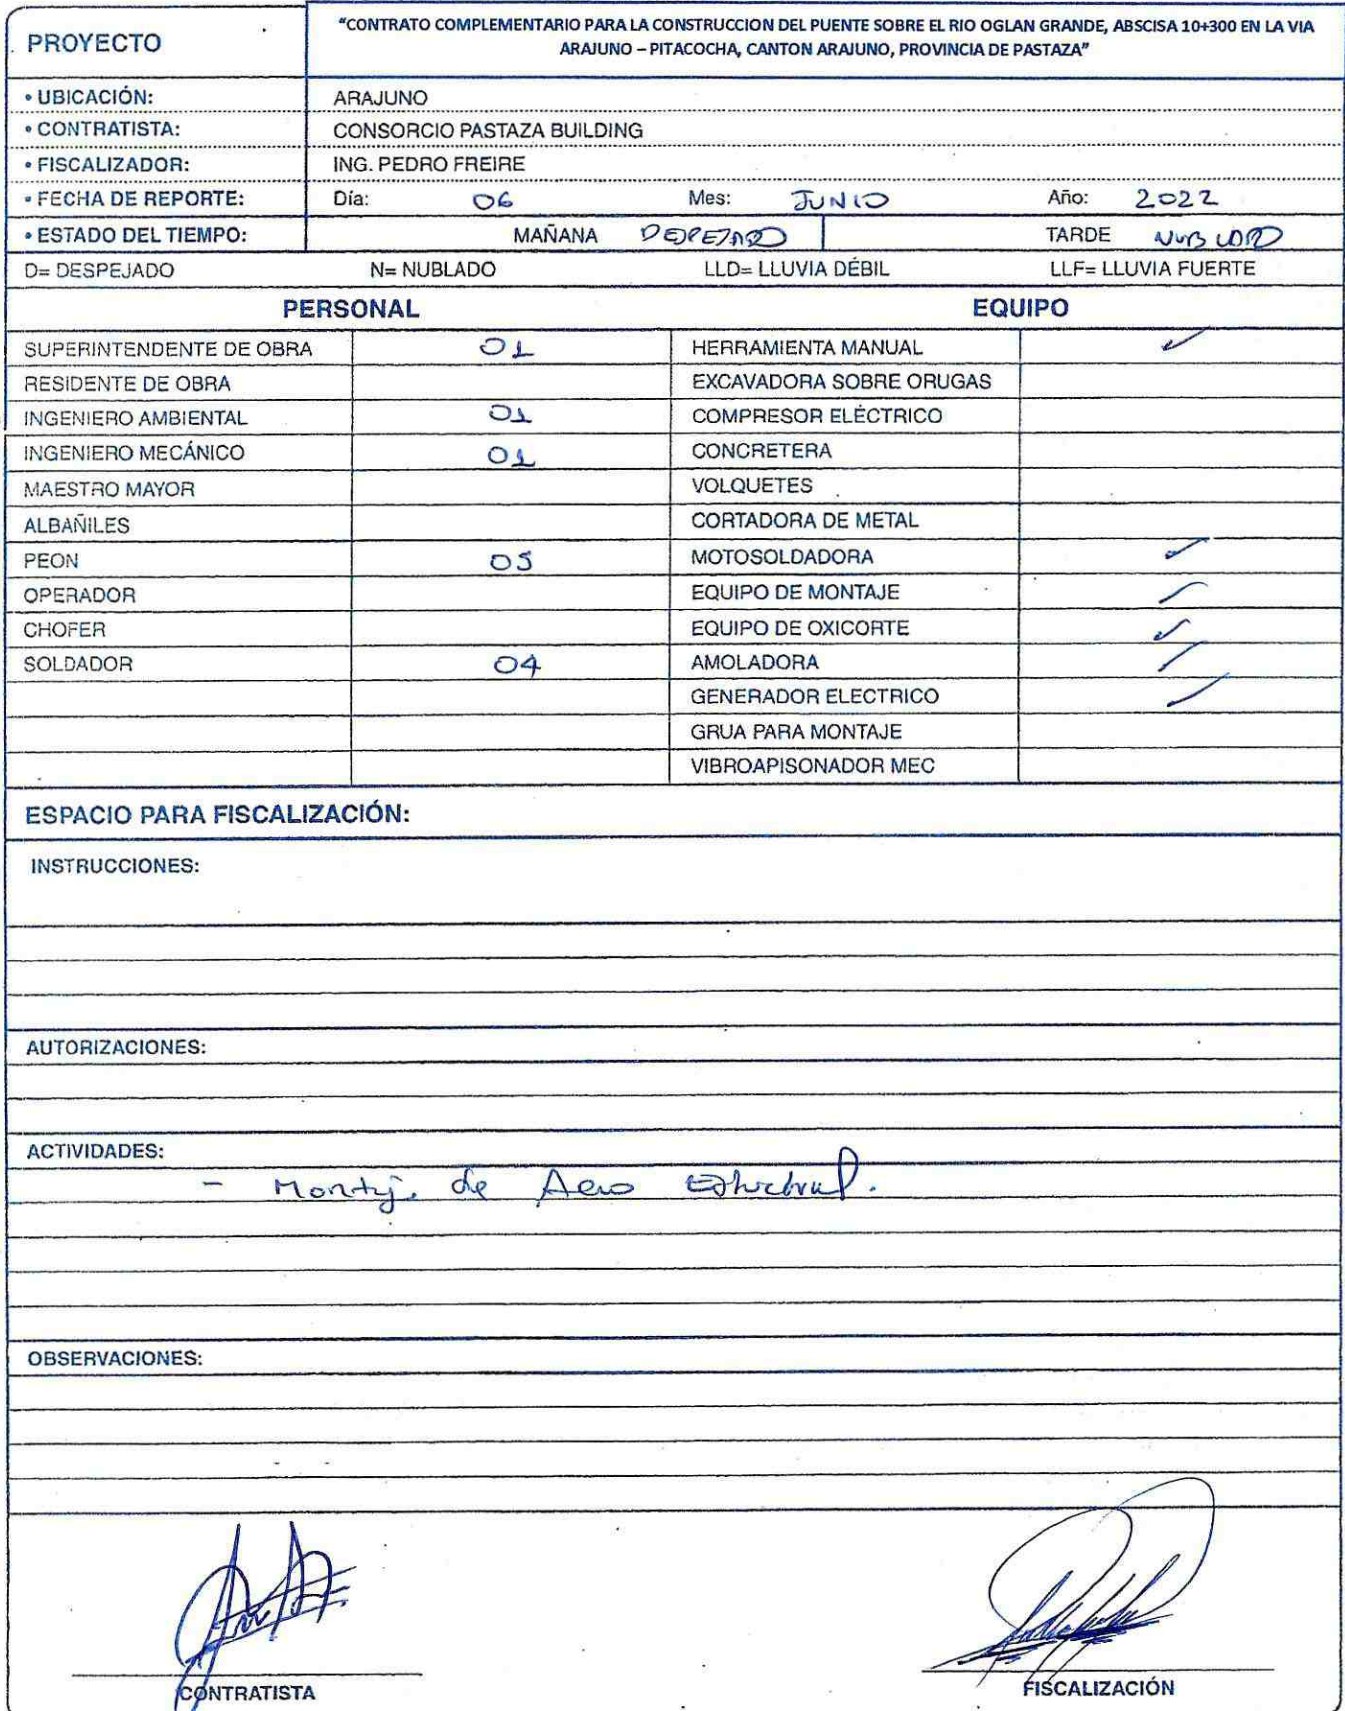 PROYECTO
"CONTRATO COMPLEMENTARIO PARA LA CONSTRUCCION DEL PUENTE SOBRE EL RIO OGLAN GRANDE, ABSCISA 10+300 EN LA VIA
ARAJUNO – PITACOCHA, CANTON ARAJUNO, PROVINCIA DE PASTAZA"
• UBICACIÓN: ARAJUNO
• CONTRATISTA: CONSORCIO PASTAZA BUILDING
• FISCALIZADOR: ING. PEDRO FREIRE
• FECHA DE REPORTE: Día: 06 Mes: JUNIO Año: 2022
• ESTADO DEL TIEMPO: MAÑANA DEPEJADO TARDE NUBLADO
D= DESPEJADO N= NUBLADO LLD= LLUVIA DÉBIL LLF= LLUVIA FUERTE
PERSONAL EQUIPO
SUPERINTENDENTE DE OBRA 01 HERRAMIENTA MANUAL ✓
RESIDENTE DE OBRA EXCAVADORA SOBRE ORUGAS
INGENIERO AMBIENTAL 01 COMPRESOR ELÉCTRICO
INGENIERO MECÁNICO 01 CONCRETERA
MAESTRO MAYOR VOLQUETES
ALBAÑILES CORTADORA DE METAL
PEON 05 MOTOSOLDADORA ✓
OPERADOR EQUIPO DE MONTAJE ✓
CHOFER EQUIPO DE OXICORTE ✓
SOLDADOR 04 AMOLADORA ✓
GENERADOR ELECTRICO ✓
GRUA PARA MONTAJE
VIBROAPISONADOR MEC
ESPACIO PARA FISCALIZACIÓN:
INSTRUCCIONES:
AUTORIZACIONES:
ACTIVIDADES:
- Montaje de Acero Estructural.
OBSERVACIONES:
CONTRATISTA FISCALIZACIÓN